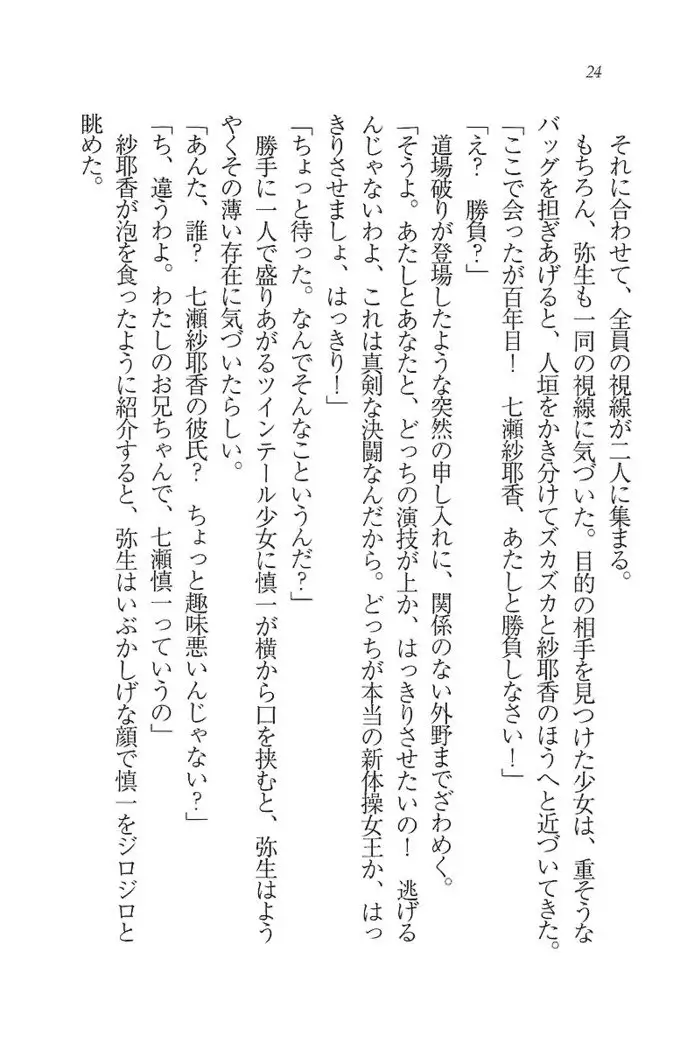 24
それに合わせて、全員の視線が二人に集まる。
もちろん、弥生も一同の視線に気づいた。目的の相手を見つけた少女は、重そうな
バッグを担ぎあげると、人垣をかき分けてズカズカと紗耶香のほうへと近づいてきた。
「ここで会ったが百年目！　七瀬紗耶香、あたしと勝負しなさい！」
「え？　勝負？」
道場破りが登場したような突然の申し入れに、関係のない外野までざわめく。
「そうよ。あたしとあなたと、どっちの演技が上か、はっきりさせたいの！　逃げる
んじゃないわよ、これは真剣な決闘なんだから。どっちが本当の新体操女王か、はっ
きりさせましょ、はっきり！」
「ちょっと待った。なんでそんなこというんだ？」
勝手に一人で盛りあがるツインテール少女に慎一が横から口を挟むと、弥生はよう
やくその薄い存在に気づいたらしい。
「あんた、誰？　七瀬紗耶香の彼氏？　ちょっと趣味悪いんじゃない？」
「ち、違うわよ。わたしのお兄ちゃんで、七瀬慎一っていうの」
紗耶香が泡を食ったように紹介すると、弥生はいぶかしげな顔で慎一をジロジロと
眺めた。